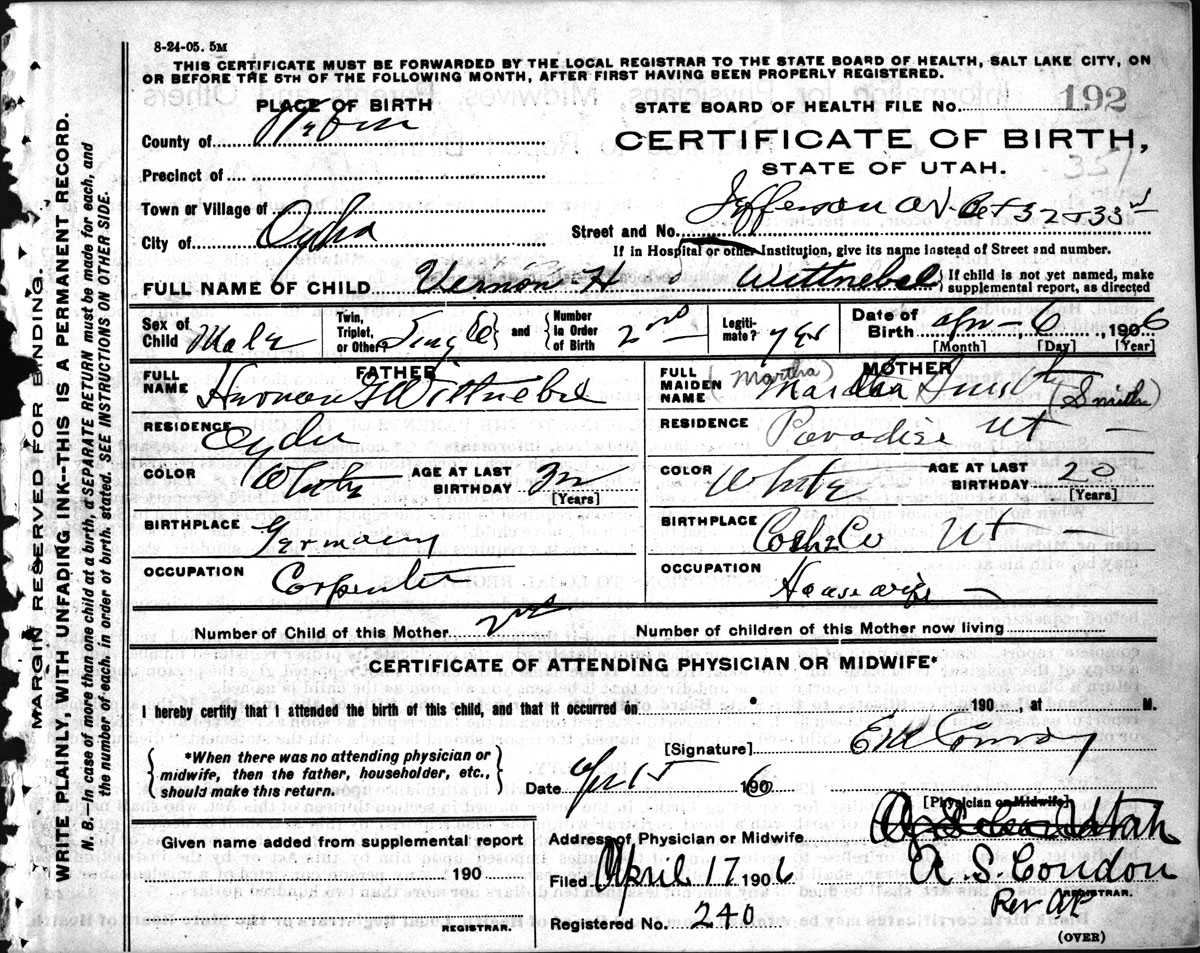 8-24-05. 5M
THIS CERTIFICATE MUST BE FORWARDED BY THE LOCAL REGISTRAR TO THE STATE BOARD OF HEALTH, SALT LAKE CITY, ON
OR BEFORE THE 5TH OF THE FOLLOWING MONTH, AFTER FIRST HAVING BEEN PROPERLY REGISTERED.
PLACE OF BIRTH
STATE BOARD OF HEALTH FILE No. 192
County of Weber
CERTIFICATE OF BIRTH,
STATE OF UTAH.
351
Precinct of
Town or Village of
Street and No. Jefferson av. Bet 32 & 33rd
City of Ogden
If in Hospital or other Institution, give its name instead of Street and number.
FULL NAME OF CHILD Vernon H Wittnebel { If child is not yet named, make supplemental report, as directed
Sex of Child Male
Twin, Triplet, or Other? Single and { Number in Order of Birth 2nd
Legitimate? yes
Date of Birth Apr 6, 1906
[Month] [Day] [Year]
FATHER
FULL NAME Herman G Wittnebel
RESIDENCE Ogden
COLOR White
AGE AT LAST BIRTHDAY
[Years]
BIRTHPLACE Germany
OCCUPATION Carpenter
MOTHER
FULL MAIDEN NAME (Martha) (Smith)
RESIDENCE Paradise Ut
COLOR White
AGE AT LAST BIRTHDAY 20
[Years]
BIRTHPLACE Cache Co Ut
OCCUPATION Housewife
Number of Child of this Mother 2nd
Number of children of this Mother now living
CERTIFICATE OF ATTENDING PHYSICIAN OR MIDWIFE*
I hereby certify that I attended the birth of this child, and that it occurred on 190 , at M.
*When there was no attending physician or midwife, then the father, householder, etc., should make this return.
[Signature] E M Conroy
Date Apr 15 1906
[Physician or Midwife]
Given name added from supplemental report
190
REGISTRAR.
Address of Physician or Midwife
Filed April 17 1906 A. S. Condon
REGISTRAR.
Per AP
Registered No. 240
(OVER)
MARGIN RESERVED FOR BINDING.
WRITE PLAINLY, WITH UNFADING INK--THIS IS A PERMANENT RECORD.
N. B.—In case of more than one child at a birth, a SEPARATE RETURN must be made for each, and
the number of each, in order of birth, stated. SEE INSTRUCTIONS ON OTHER SIDE.